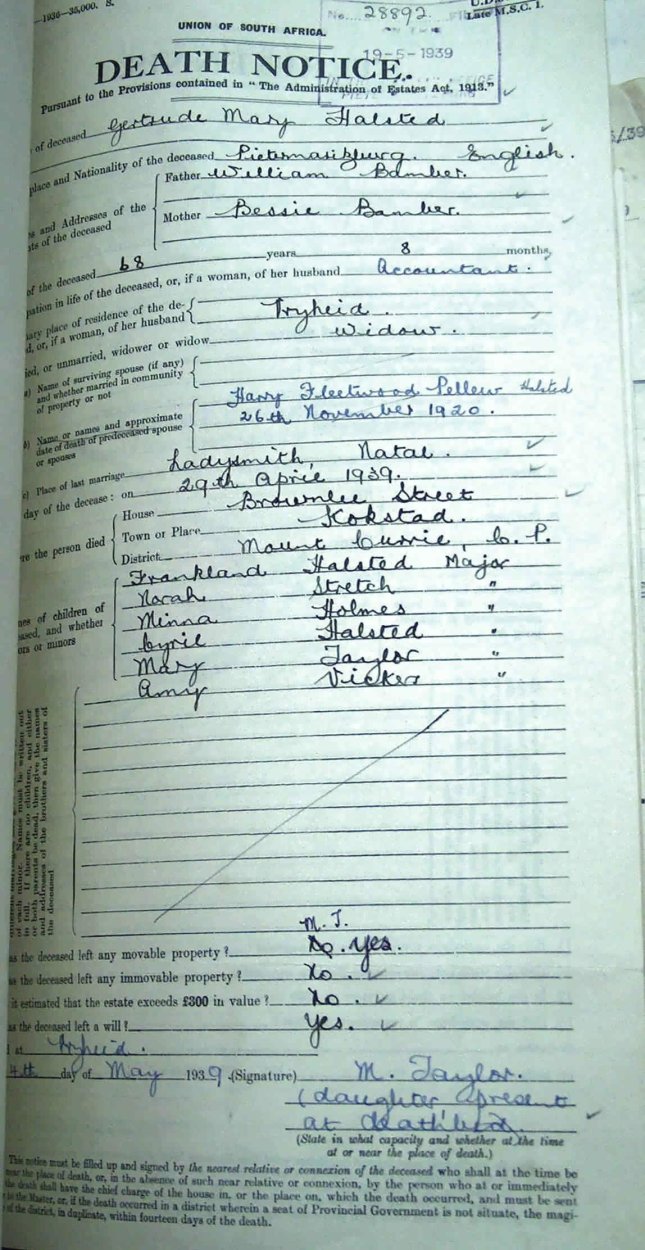 —1936—35,000. S.
No. 28892
Late M.S.C. 1.
UNION OF SOUTH AFRICA.
19-5-1939
DEATH NOTICE.
Pursuant to the Provisions contained in "The Administration of Estates Act, 1913."
of deceased Gertrude Mary Halsted
place and Nationality of the deceased Pietermaritzburg. English.
Father William Bamber.
es and Addresses of the
ts of the deceased
Mother Bessie Bamber.
of the deceased 68 years 8 months,
pation in life of the deceased, or, if a woman, of her husband Accountant.
ary place of residence of the de-
d, or, if a woman, of her husband Vryheid.
ied, or unmarried, widower or widow Widow.
a) Name of surviving spouse (if any)
and whether married in community
of property or not
Harry Fleetwood Pellew Halsted
b) Name or names and approximate
date of death of predeceased spouse
or spouses
26th November 1920.
c) Place of last marriage Ladysmith, Natal.
day of the decease: on 29th April 1939.
House Brownlee Street
re the person died
Town or Place Kokstad.
District Mount Currie, C. P.
Frankland Halsted Major
Norah Stretch "
nes of children of
ased, and whether
ors or minors
Minna Holmes "
Cyril Halsted "
Mary Taylor "
Amy Vicker "
of each minor. Names must be written out
in full. If there are no children, and either
or both parents be dead, then give the names
and addresses of the brothers and sisters of
the deceased
M. T.
as the deceased left any movable property? No. Yes.
as the deceased left any immovable property? No.
it estimated that the estate exceeds £300 in value? No.
as the deceased left a will? Yes.
at Vryheid.
4th day of May 1939. (Signature) M. Taylor.
(daughter & present
at deathbed.
(State in what capacity and whether at the time
at or near the place of death.)
This notice must be filled up and signed by the nearest relative or connexion of the deceased who shall at the time be
near the place of death, or, in the absence of such near relative or connexion, by the person who at or immediately
the death shall have the chief charge of the house in, or the place on, which the death occurred, and must be sent
to the Master, or, if the death occurred in a district wherein a seat of Provincial Government is not situate, the magi-
of the district, in duplicate, within fourteen days of the death.